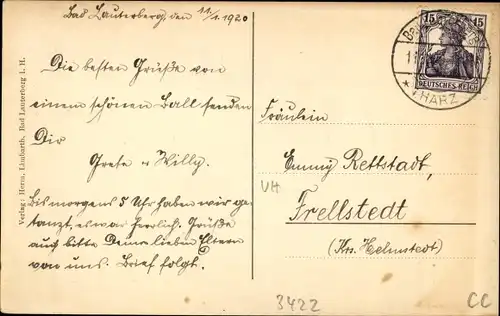 Bad Lauterberg, den 11/1. 1920
Die besten Grüße von
einem schönen Ball senden
Dir
Grete u Willy.
Bis morgens 5 Uhr haben wir ge-
tanzt, es war herrlich. Grüße
auch bitte Deine lieben Eltern
von uns. Brief folgt.
Verlag: Herm. Limbarth, Bad Lauterberg i. H.
15 15
DEUTSCHES REICH
* HARZ
Fräulein
Emmy Rettstadt,
VH
Frellstedt
(Krs. Helmstedt)
3422
CC